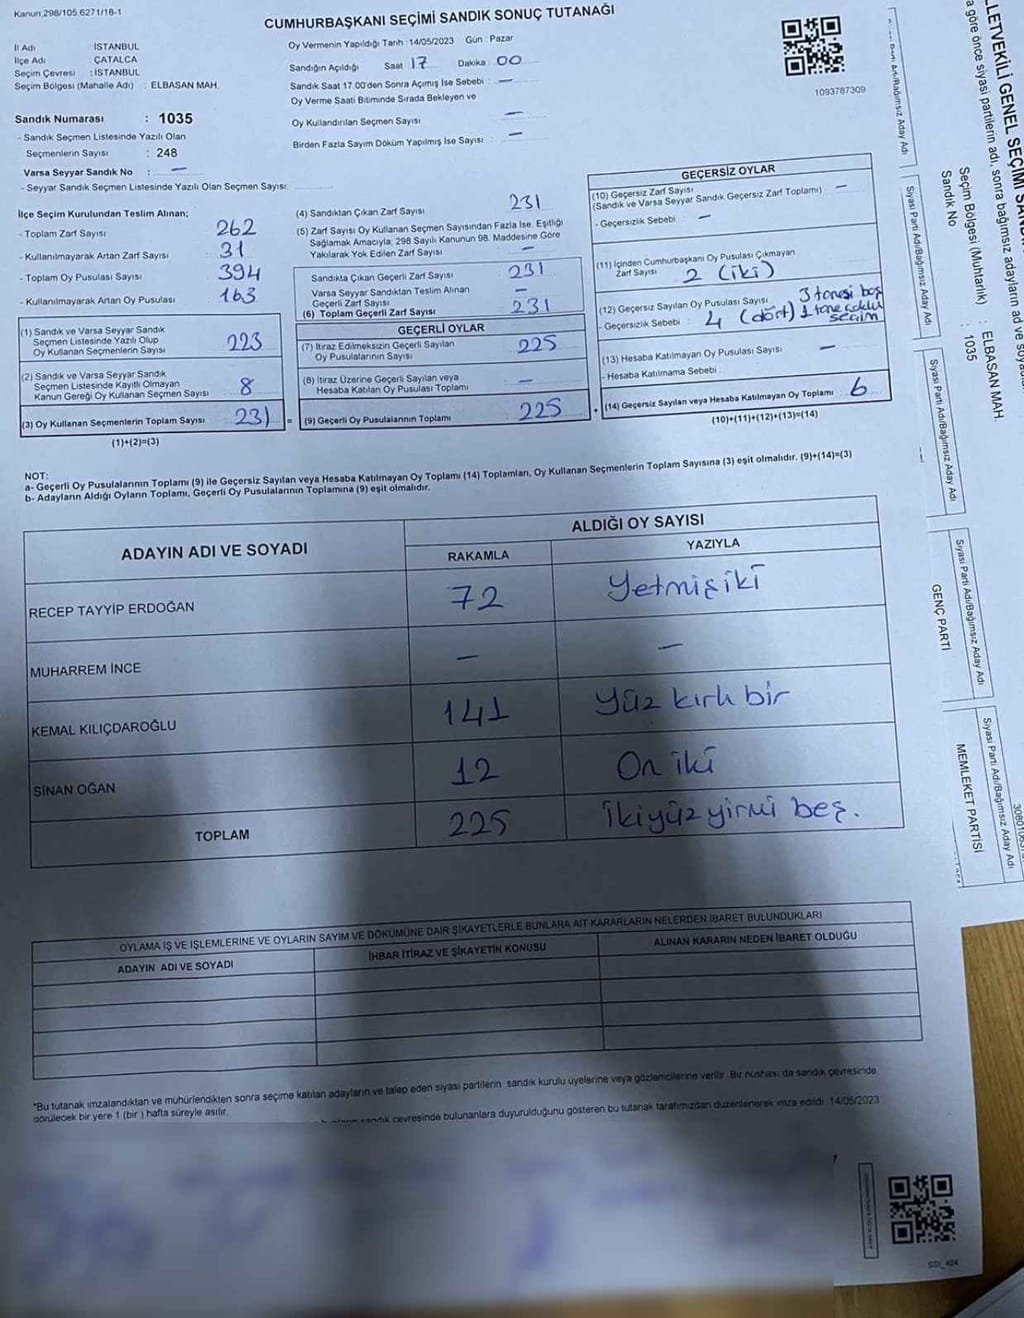 Kanun,298/105,6271/18-1
CUMHURBAŞKANI SEÇİMİ SANDIK SONUÇ TUTANAĞI
İl Adı : İSTANBUL
İlçe Adı : ÇATALCA
Seçim Çevresi : İSTANBUL
Seçim Bölgesi (Mahalle Adı) : ELBASAN MAH.
Sandık Numarası : 1035
- Sandık Seçmen Listesinde Yazılı Olan
Seçmenlerin Sayısı : 248
Varsa Seyyar Sandık No : —
- Seyyar Sandık Seçmen Listesinde Yazılı Olan Seçmen Sayısı:
Oy Vermenin Yapıldığı Tarih :14/05/2023 Gün : Pazar
Sandığın Açıldığı Saat 17 Dakika : 00
Sandık Saat 17.00'den Sonra Açımış İse Sebebi : —
Oy Verme Saati Bitiminde Sırada Bekleyen ve
Oy Kullandırılan Seçmen Sayısı : —
Birden Fazla Sayım Döküm Yapılmış İse Sayısı : —
1093787309
İlçe Seçim Kurulundan Teslim Alınan;
- Toplam Zarf Sayısı 262
- Kullanılmayarak Artan Zarf Sayısı 31
- Toplam Oy Pusulası Sayısı 394
- Kullanılmayarak Artan Oy Pusulası 163
(1) Sandık ve Varsa Seyyar Sandık
Seçmen Listesinde Yazılı Olup
Oy Kullanan Seçmenlerin Sayısı 223
(2) Sandık ve Varsa Seyyar Sandık
Seçmen Listesinde Kayıtlı Olmayan
Kanun Gereği Oy Kullanan Seçmen Sayısı 8
(3) Oy Kullanan Seçmenlerin Toplam Sayısı 231 =
(1)+(2)=(3)
(4) Sandıktan Çıkan Zarf Sayısı 231
(5) Zarf Sayısı Oy Kullanan Seçmen Sayısından Fazla İse, Eşitliği
Sağlamak Amacıyla; 298 Sayılı Kanunun 98. Maddesine Göre
Yakılarak Yok Edilen Zarf Sayısı —
Sandıkta Çıkan Geçerli Zarf Sayısı 231
Varsa Seyyar Sandıktan Teslim Alınan
Geçerli Zarf Sayısı —
(6) Toplam Geçerli Zarf Sayısı 231
GEÇERLİ OYLAR
(7) İtiraz Edilmeksizin Geçerli Sayılan
Oy Pusulalarının Sayısı 225
(8) İtiraz Üzerine Geçerli Sayılan veya
Hesaba Katılan Oy Pusulası Toplamı —
(9) Geçerli Oy Pusulalarının Toplamı 225 +
GEÇERSİZ OYLAR
(10) Geçersiz Zarf Sayısı
(Sandık ve Varsa Seyyar Sandık Geçersiz Zarf Toplamı) —
- Geçersizlik Sebebi : —
(11) İçinden Cumhurbaşkanı Oy Pusulası Çıkmayan
Zarf Sayısı 2 (iki)
(12) Geçersiz Sayılan Oy Pusulası Sayısı 3 tanesi boş
- Geçersizlik Sebebi : 4 (dört) 1 tane çoklu
seçim
(13) Hesaba Katılmayan Oy Pusulası Sayısı —
- Hesaba Katılmama Sebebi :
(14) Geçersiz Sayılan veya Hesaba Katılmayan Oy Toplamı 6
(10)+(11)+(12)+(13)=(14)
NOT:
a- Geçerli Oy Pusulalarının Toplamı (9) ile Geçersiz Sayılan veya Hesaba Katılmayan Oy Toplamı (14) Toplamları, Oy Kullanan Seçmenlerin Toplam Sayısına (3) eşit olmalıdır. (9)+(14)=(3)
b- Adayların Aldığı Oyların Toplamı, Geçerli Oy Pusulalarının Toplamına (9) eşit olmalıdır.
ADAYIN ADI VE SOYADI
ALDIĞI OY SAYISI
RAKAMLA YAZIYLA
RECEP TAYYİP ERDOĞAN 72 Yetmişiki
MUHARREM İNCE — —
KEMAL KILIÇDAROĞLU 141 Yüz kırk bir
SİNAN OĞAN 12 On iki
TOPLAM 225 İkiyüz yirmi beş.
OYLAMA İŞ VE İŞLEMLERİNE VE OYLARIN SAYIM VE DÖKÜMÜNE DAİR ŞİKAYETLERLE BUNLARA AİT KARARLARIN NELERDEN İBARET BULUNDUKLARI
ADAYIN ADI VE SOYADI İHBAR İTİRAZ VE ŞİKAYETİN KONUSU ALINAN KARARIN NEDEN İBARET OLDUĞU
*Bu tutanak imzalandıktan ve mühürlendikten sonra seçime katılan adayların ve talep eden siyasi partilerin sandık kurulu üyelerine veya gözlemcilerine verilir. Bir nüshası da sandık çevresinde
görülecek bir yere 1 (bir ) hafta süreyle asılır.
sandık çevresinde bulunanlara duyurulduğunu gösteren bu tutanak tarafımızdan düzenlenerek imza edildi. 14/05/2023
SSI_404
LETVEKİLİ GENEL SEÇİMİ
a göre önce siyasi partilerin adı, sonra bağımsız adayların ad ve
Seçim Bölgesi (Muhtarlık) : ELBASAN MAH.
Sandık No : 1035
Siyasi Parti Adı/Bağımsız Aday Adı
Siyasi Parti Adı/Bağımsız Aday Adı
Siyasi Parti Adı/Bağımsız Aday Adı
Siyasi Parti Adı/Bağımsız Aday Adı
GENÇ PARTİ
Siyasi Parti Adı/Bağımsız Aday Adı
MEMLEKET PARTİSİ